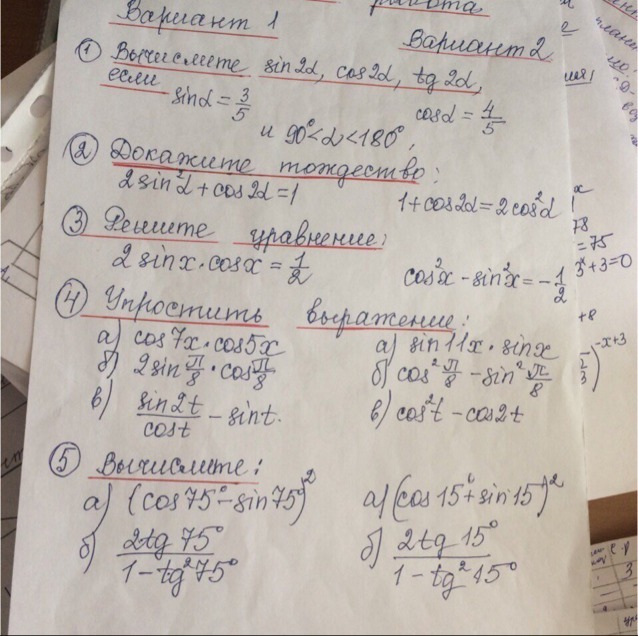 работа
Вариант 1
Вариант 2
① Вычислите sin2α, cos2α, tg2α,
если
sinα = 3/5
cosα = 4/5
и 90°<α<180°,
② Докажите тождество:
2sin²α + cos2α = 1
1 + cos2α = 2cos²α
③ Решите уравнение:
2 sinx · cosx = 1/2
cos²x - sin²x = -1/2
④ Упростить выражение:
а) cos7x · cos5x
а) sin11x · sinx
б) 2sin π/8 · cos π/8
б) cos² π/8 - sin² π/8
в) sin2t/cost - sint.
в) cos²t - cos2t
⑤ Вычислите:
а) (cos75° - sin75°)²
а) (cos15° + sin15°)²
б) 2tg75°/1 - tg²75°
б) 2tg15°/1 - tg²15°
x
78
= 75
+3=0
+8
-x+3